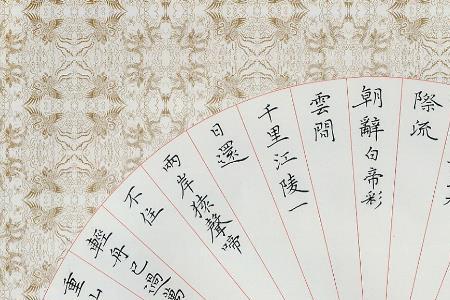 際流
朝辭白帝彩
雲間
千里江陵一
日還
兩岸猿聲啼
不住
輕舟已過萬
重山